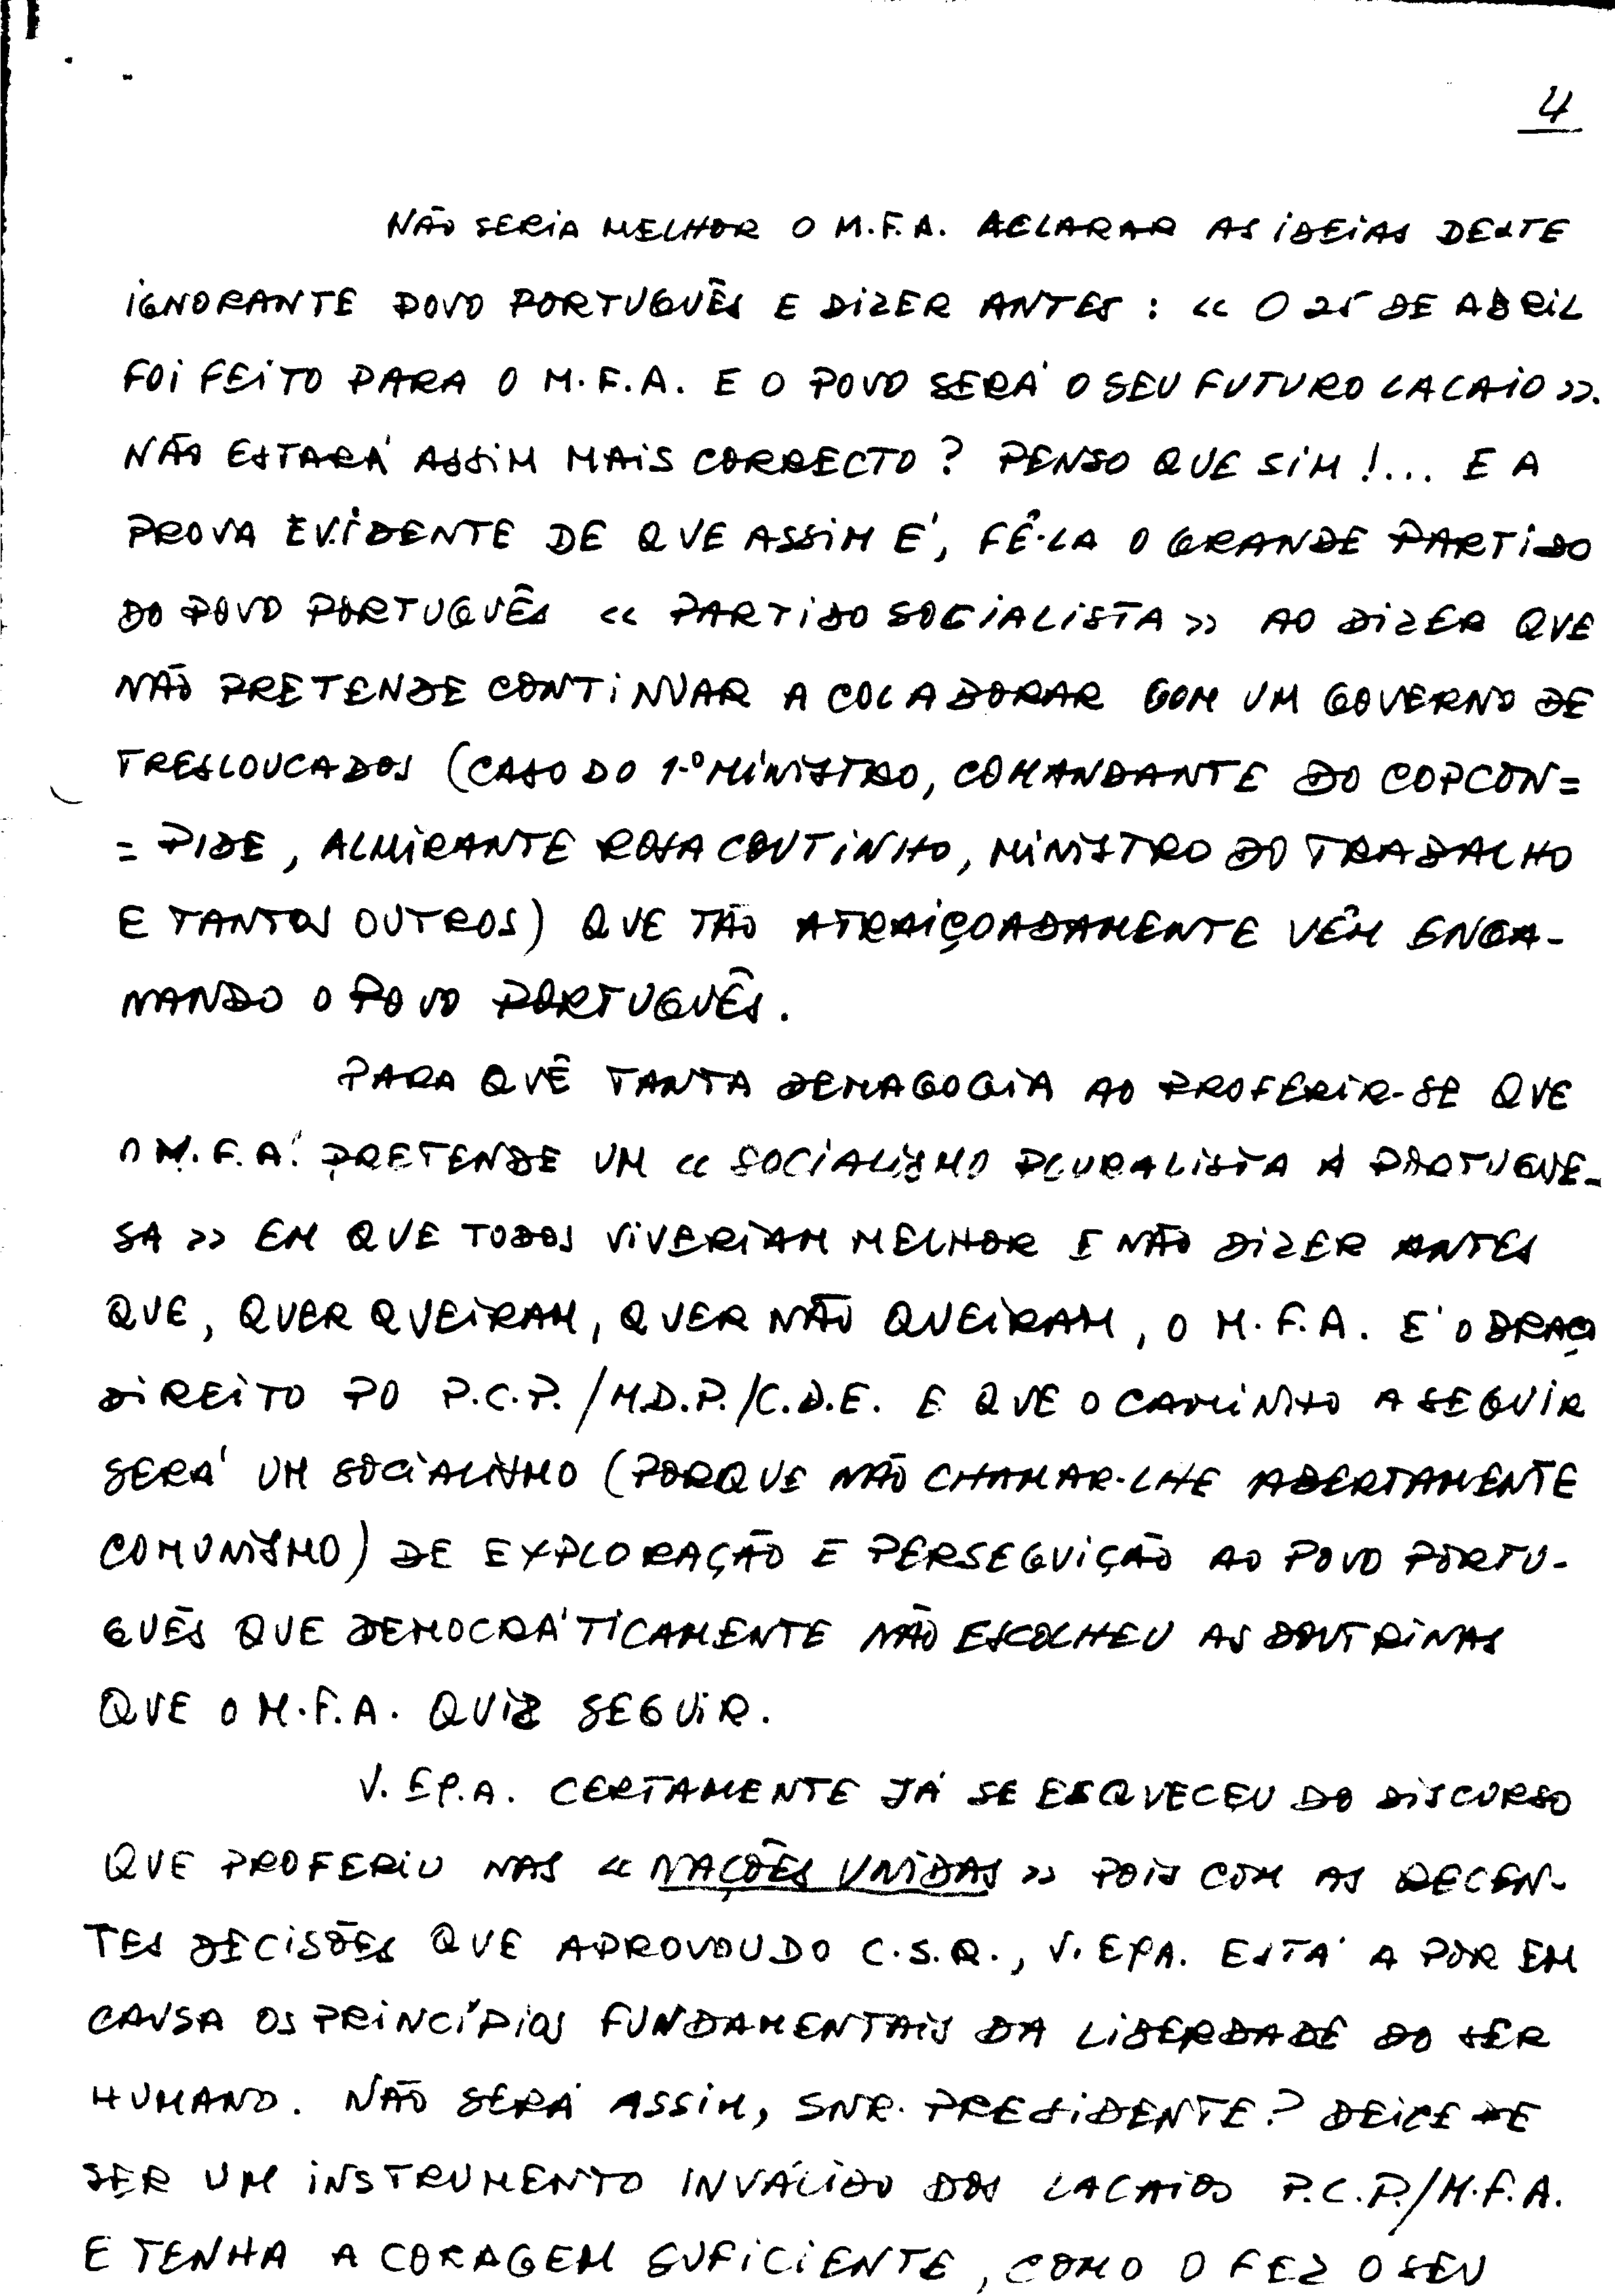 4
NÃO SERIA MELHOR O M.F.A. ACLARAR AS IDEIAS DESTE
IGNORANTE POVO PORTUGUÊS E DIZER ANTES : « O 25 DE ABRIL
FOI FEITO PARA O M.F.A. E O POVO SERÁ O SEU FUTURO LACAIO ».
NÃO ESTARÁ ASSIM MAIS CORRECTO ? PENSO QUE SIM !... E A
PROVA EVIDENTE DE QUE ASSIM É, FÊ-LA O GRANDE PARTIDO
DO POVO PORTUGUÊS « PARTIDO SOCIALISTA » AO DIZER QUE
NÃO PRETENDE CONTINUAR A COLABORAR COM UM GOVERNO DE
TRESLOUCADOS (CASO DO 1.º MINISTRO, COMANDANTE DO COPCON=
= PIDE, ALMIRANTE ROSA COUTINHO, MINISTRO DO TRABALHO
E TANTOS OUTROS) QUE TÃO ATRAIÇOADAMENTE VÊM ENGA-
NANDO O POVO PORTUGUÊS.
PARA QUÊ TANTA DEMAGOGIA AO PROFERIR-SE QUE
O M.F.A. PRETENDE UM « SOCIALISMO PLURALISTA Á PORTUGUE-
SA » EM QUE TODOS VIVERIAM MELHOR E NÃO DIZER ANTES
QUE, QUER QUEIRAM, QUER NÃO QUEIRAM, O M.F.A. É O BRAÇO
DIREITO DO P.C.P./M.D.P./C.D.E. E QUE O CAMINHO A SEGUIR
SERÁ UM SOCIALISMO (PORQUE NÃO CHAMAR-LHE ABERTAMENTE
COMUNISMO) DE EXPLORAÇÃO E PERSEGUIÇÃO AO POVO PORTU-
GUÊS QUE DEMOCRÁTICAMENTE NÃO ESCOLHEU AS DOUTRINAS
QUE O M.F.A. QUIZ SEGUIR.
V. EXª. CERTAMENTE JÁ SE ESQUECEU DO DISCURSO
QUE PROFERIU NAS « NAÇÕES UNIDAS » POIS COM AS RECEN-
TES DECISÕES QUE APROVOU DO C.S.R., V. EXª. ESTÁ A PÔR EM
CAUSA OS PRINCÍPIOS FUNDAMENTAIS DA LIBERDADE DO SER
HUMANO. NÃO SERÁ ASSIM, SNR. PRESIDENTE ? DEICE DE
SER UM INSTRUMENTO INVÁLIDO DOS LACAIOS P.C.P./M.F.A.
E TENHA A CORAGEM SUFICIENTE, COMO O FEZ O SEU